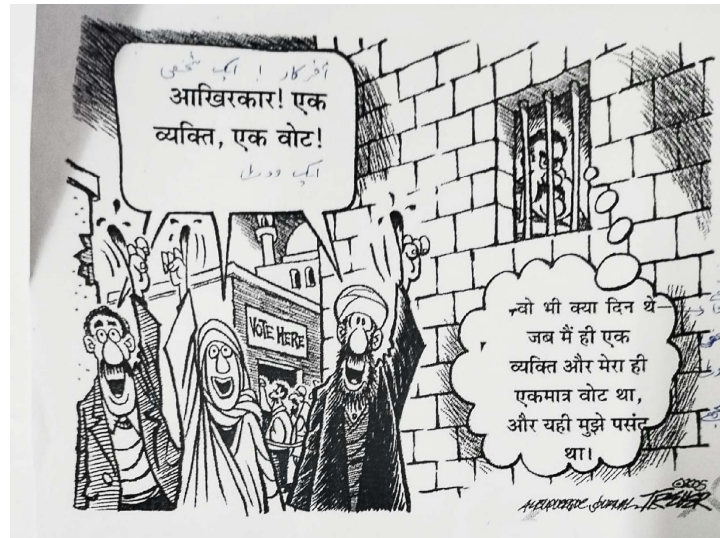 آخر کار ! ایک شخص
आखिरकार! एक
व्यक्ति, एक वोट!
ایک ووٹ
VOTE HERE
वो भी क्या दिन थे
जब मैं ही एक
व्यक्ति और मेरा ही
एकमात्र वोट था,
और यही मुझे पसंद
था।
©2005
ALBUQUERQUE JOURNAL TREVER